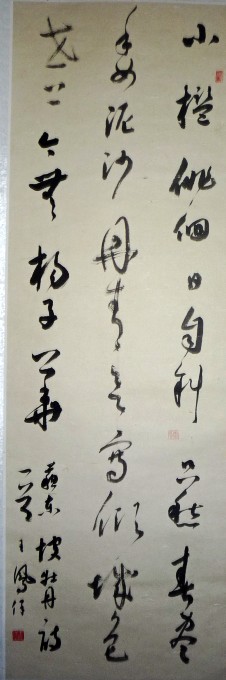 小檻徘徊日自斜 只愁春盡
委泥沙 丹青欲寫傾城色
世上今無楊子華 蘇東坡牡丹詩
一首 王鳳